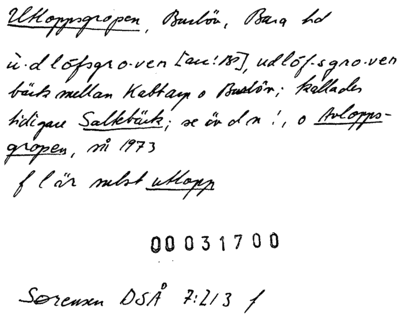 Utloppsgropen, Burlöv, Bara hd
ù·dlöfsgro·ven [au: BS], udlöf·sgro·ven
bäck mellan Kabbarp o Burlöv; kallades
tidigare Saltbäck; se äv d n!, o Avlopps-
gropen, 1973
f l är subst utlopp
00031700
Sørensen DSÅ 7:213 f